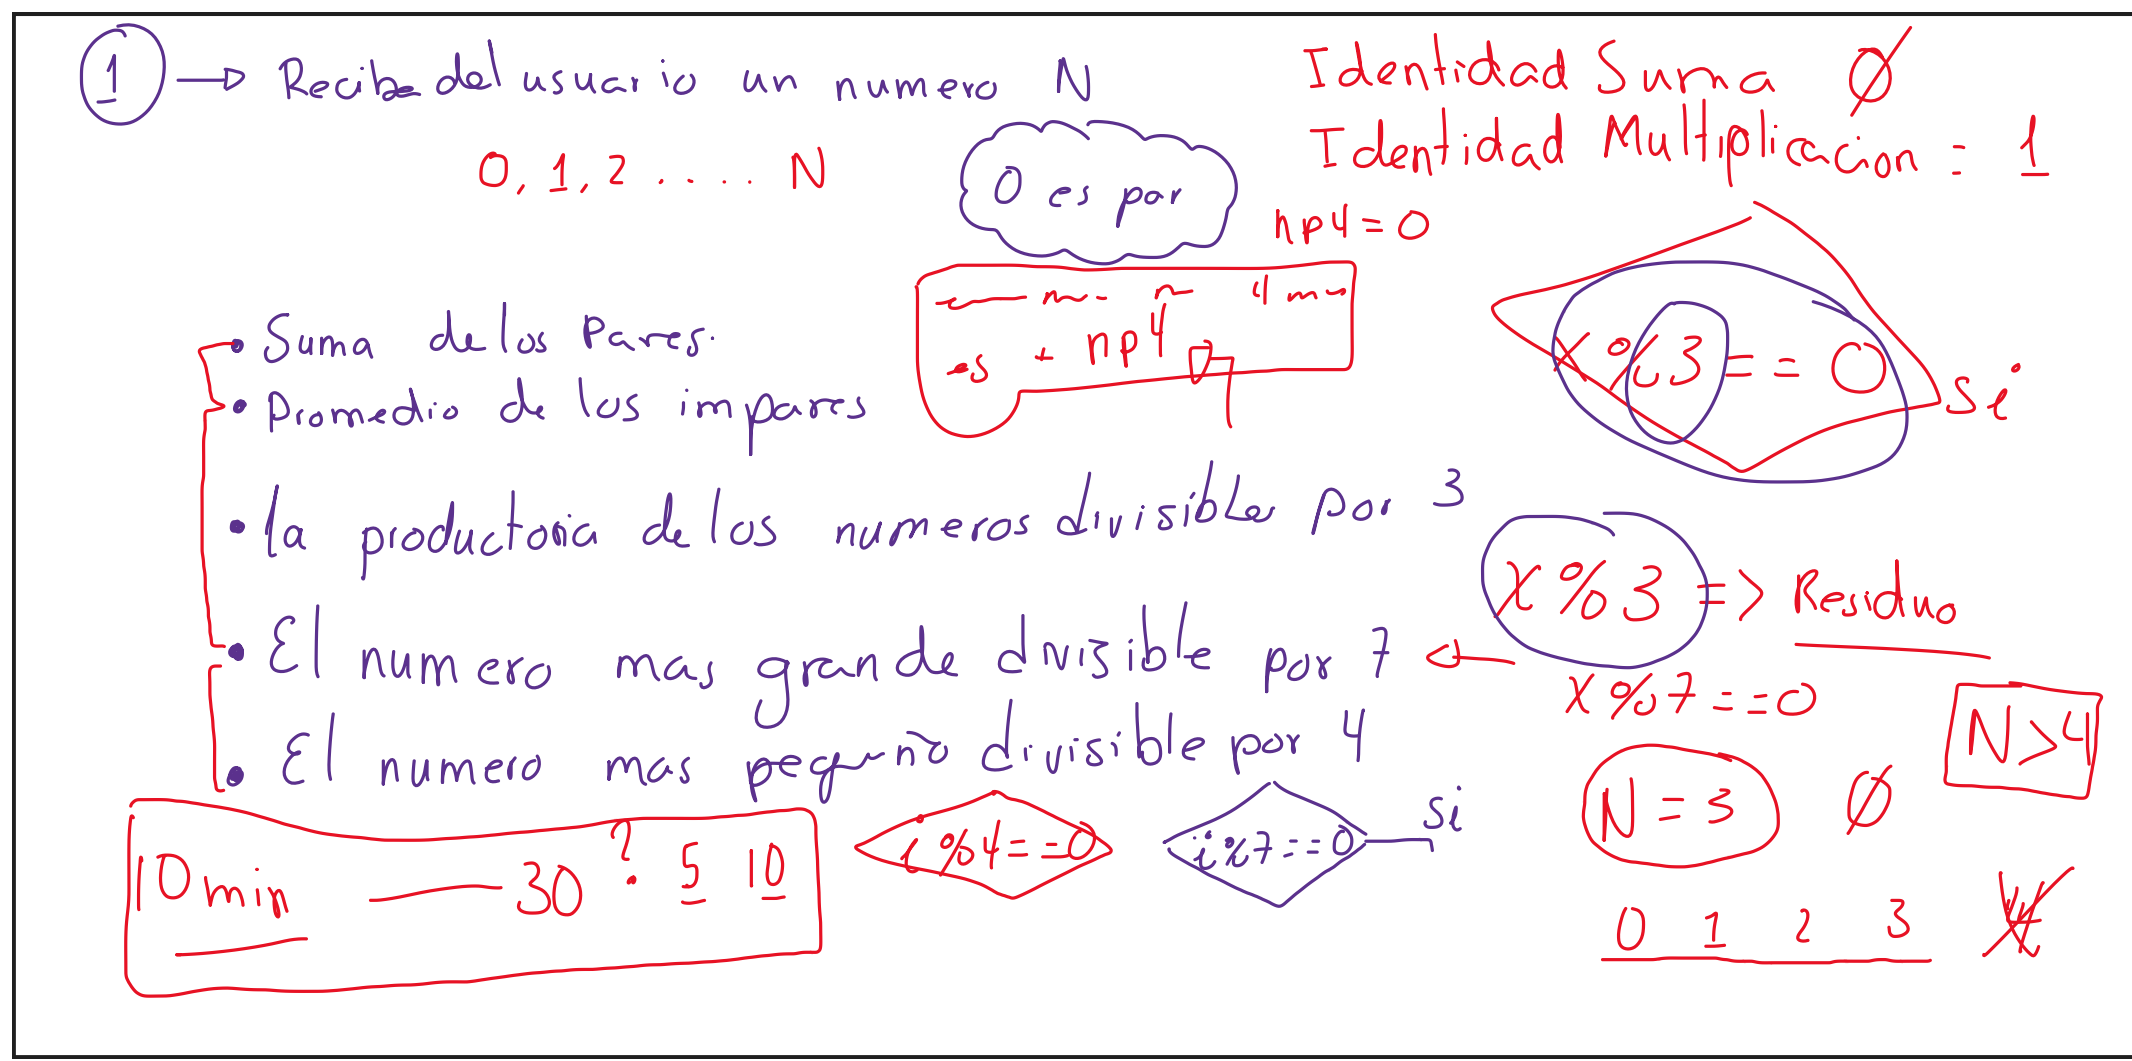 1 → Recibe del usuario un numero N
0, 1, 2 . . . . . N
Identidad Suma Ø
Identidad Multiplicacion = 1
0 es par
np4 = 0
4
es + np4
x % 3 == 0
si
• Suma de los Pares.
• Promedio de los impares
• la productoria de los numeros divisibles por 3
x % 3 => Residuo
• El numero mas grande divisible por 7
x % 7 == 0
N > 4
• El numero mas pequeño divisible por 4
N = 3 Ø
10 min — 30 ? 5 10
i % 4 == 0
i % 7 == 0
si
0 1 2 3